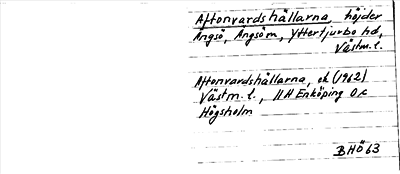 Aftonvardshällarna, höjder
Ängsö, Ängsö sn, Yttertjurbo hd,
Västm. l.
Aftonvardshällarna, ek (1962)
Västm. l., 11H Enköping 0 f
Högsholm
BHÖ 63